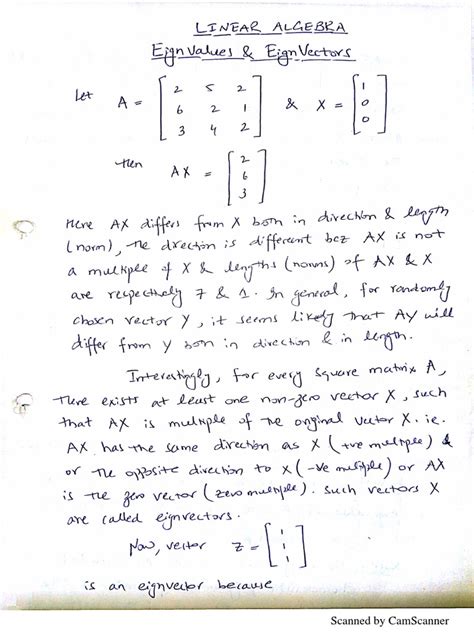 LINEAR ALGEBRA
Eignvalues & EignVectors
Let A = [ 2 5 2 ; 6 2 1 ; 3 4 2 ] & X = [ 1 ; 0 ; 0 ]
then AX = [ 2 ; 6 ; 3 ]
Here AX differs from X both in direction & length
(norm), the direction is different bcz AX is not
a multiple of X & lengths (norms) of AX & X
are respectively 7 & 1. In general, for randomly
chosen vector Y, it seems likely that AY will
differ from Y both in direction & in length.
Interestingly, for every square matrix A,
there exists at least one non-zero vector X, such
that AX is multiple of the original vector X. i.e.
AX has the same direction as X (+ve multiple) &
or the opposite direction to X (-ve multiple) or AX
is the zero vector (zero multiple). Such vectors X
are called eignvectors.
Now, vector Z = [ 1 ; 1 ; 1 ]
is an eignvector because
Scanned by CamScanner